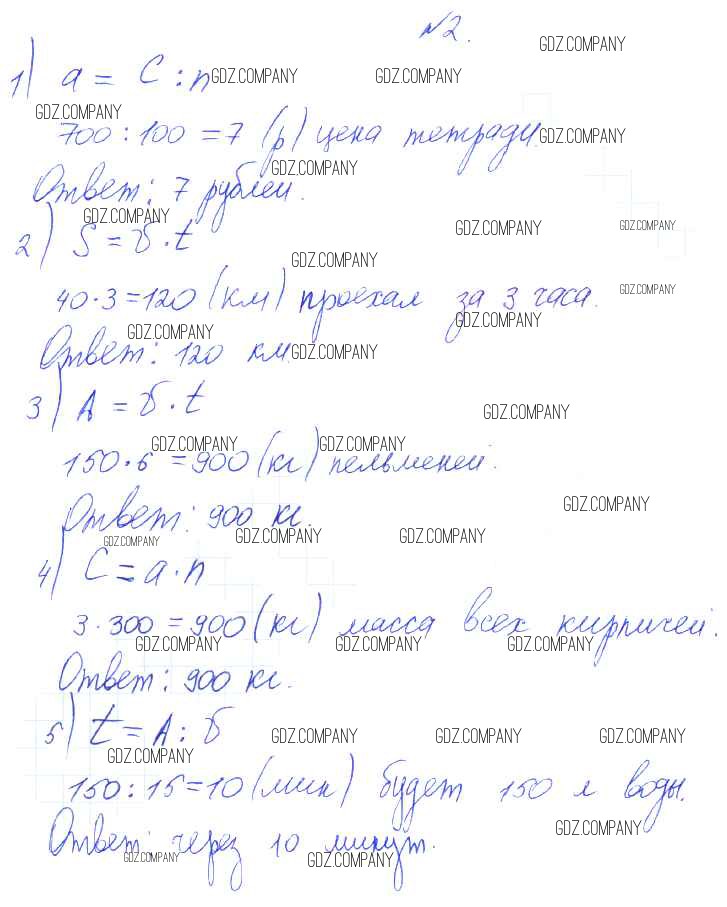 №2.
GDZ.COMPANY
1) a = C : n GDZ.COMPANY GDZ.COMPANY
GDZ.COMPANY
700 : 100 = 7 (р) цена тетради. GDZ.COMPANY
GDZ.COMPANY
Ответ: 7 рублей.
GDZ.COMPANY GDZ.COMPANY GDZ.COMPANY
2) S = v · t
GDZ.COMPANY
40 · 3 = 120 (км) проехал за 3 часа. GDZ.COMPANY
GDZ.COMPANY GDZ.COMPANY
Ответ: 120 км. GDZ.COMPANY
3) A = v · t GDZ.COMPANY
GDZ.COMPANY GDZ.COMPANY
150 · 6 = 900 (кг) пельменей.
GDZ.COMPANY
Ответ: 900 кг.
GDZ.COMPANY GDZ.COMPANY GDZ.COMPANY
4) C = a · n
3 · 300 = 900 (кг) масса всех кирпичей.
GDZ.COMPANY GDZ.COMPANY GDZ.COMPANY
Ответ: 900 кг.
5) t = A : v GDZ.COMPANY GDZ.COMPANY GDZ.COMPANY
GDZ.COMPANY
150 : 15 = 10 (мин) будет 150 л воды.
GDZ.COMPANY
Ответ: через 10 минут.
GDZ.COMPANY GDZ.COMPANY